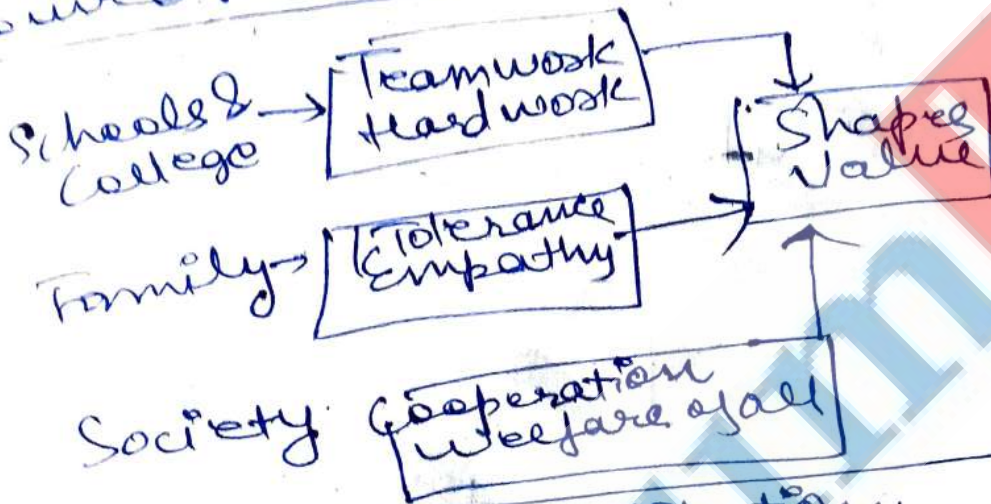 Schools &
College
Teamwork
Hardwork
Shapes
Value
Family
Tolerance
Empathy
Society
Cooperation
Welfare of all